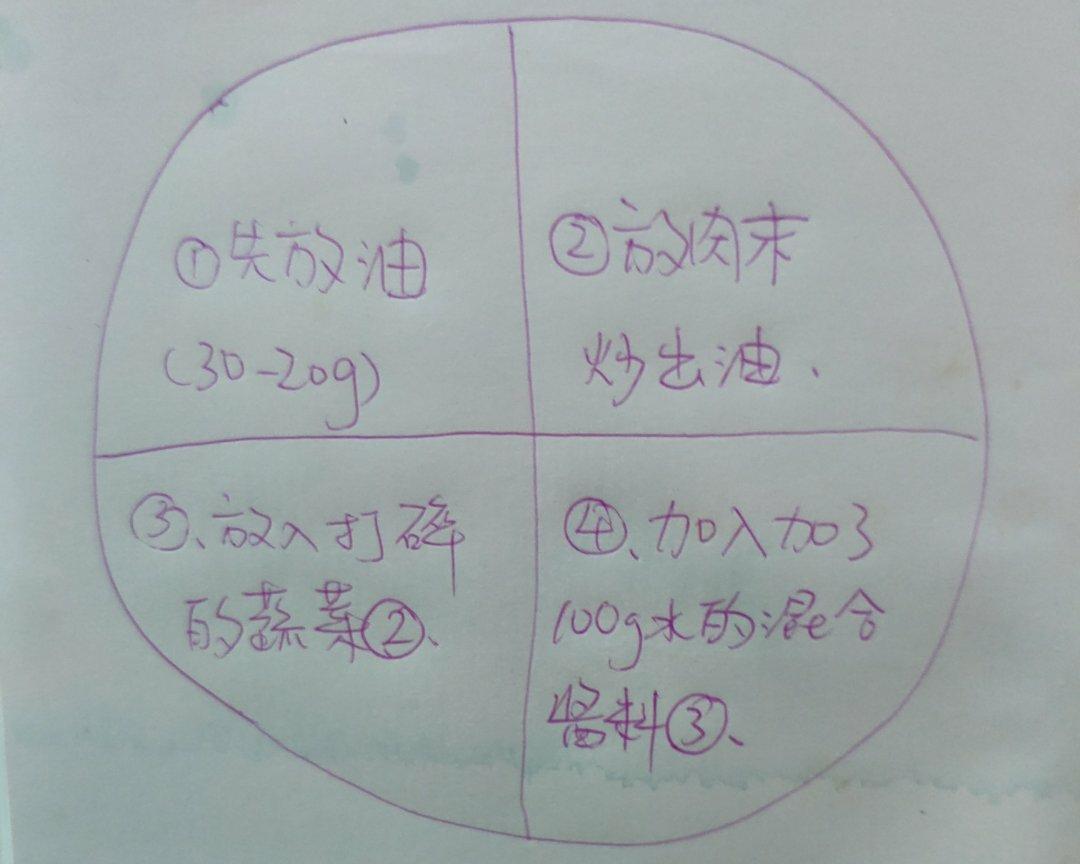 ①先放油
(30-20g)
②放肉末
炒出油.
③、放入打碎
的蔬菜②、
④、加入加了
100g水的混合
酱料③、